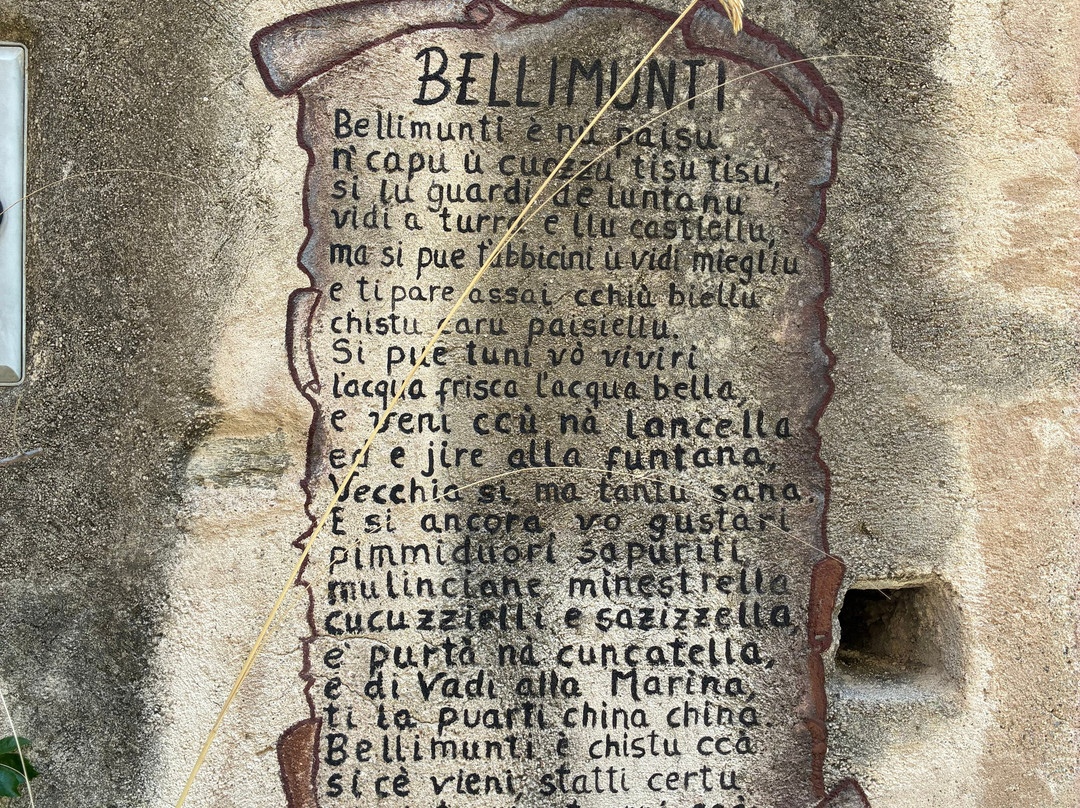 BELLIMUNTI
Bellimunti è nù paisu
n'capu ù cuozzu tisu tisu,
si lu guardi de luntanu
vidi a turra e llu castiellu,
ma si pue t'abbicini ù vidi miegliu
e ti pare assai cchiù biellu
chistu caru paisiellu.
Si pue tuni vò viviri
l'acqua frisca l'acqua bella,
e veni ccù nà lancella
ed e jire alla funtana,
Vecchia si, ma tantu sana.
E si ancora, vo gustari
pimmiduori sapuriti
mulinciane minestrella
cucuzzielli e sazizzella,
e' purtà nà cuncatella,
e di Vadi alla Marina,
ti la puarti china china.
Bellimunti è chistu ccà
si cè vieni, statti certu